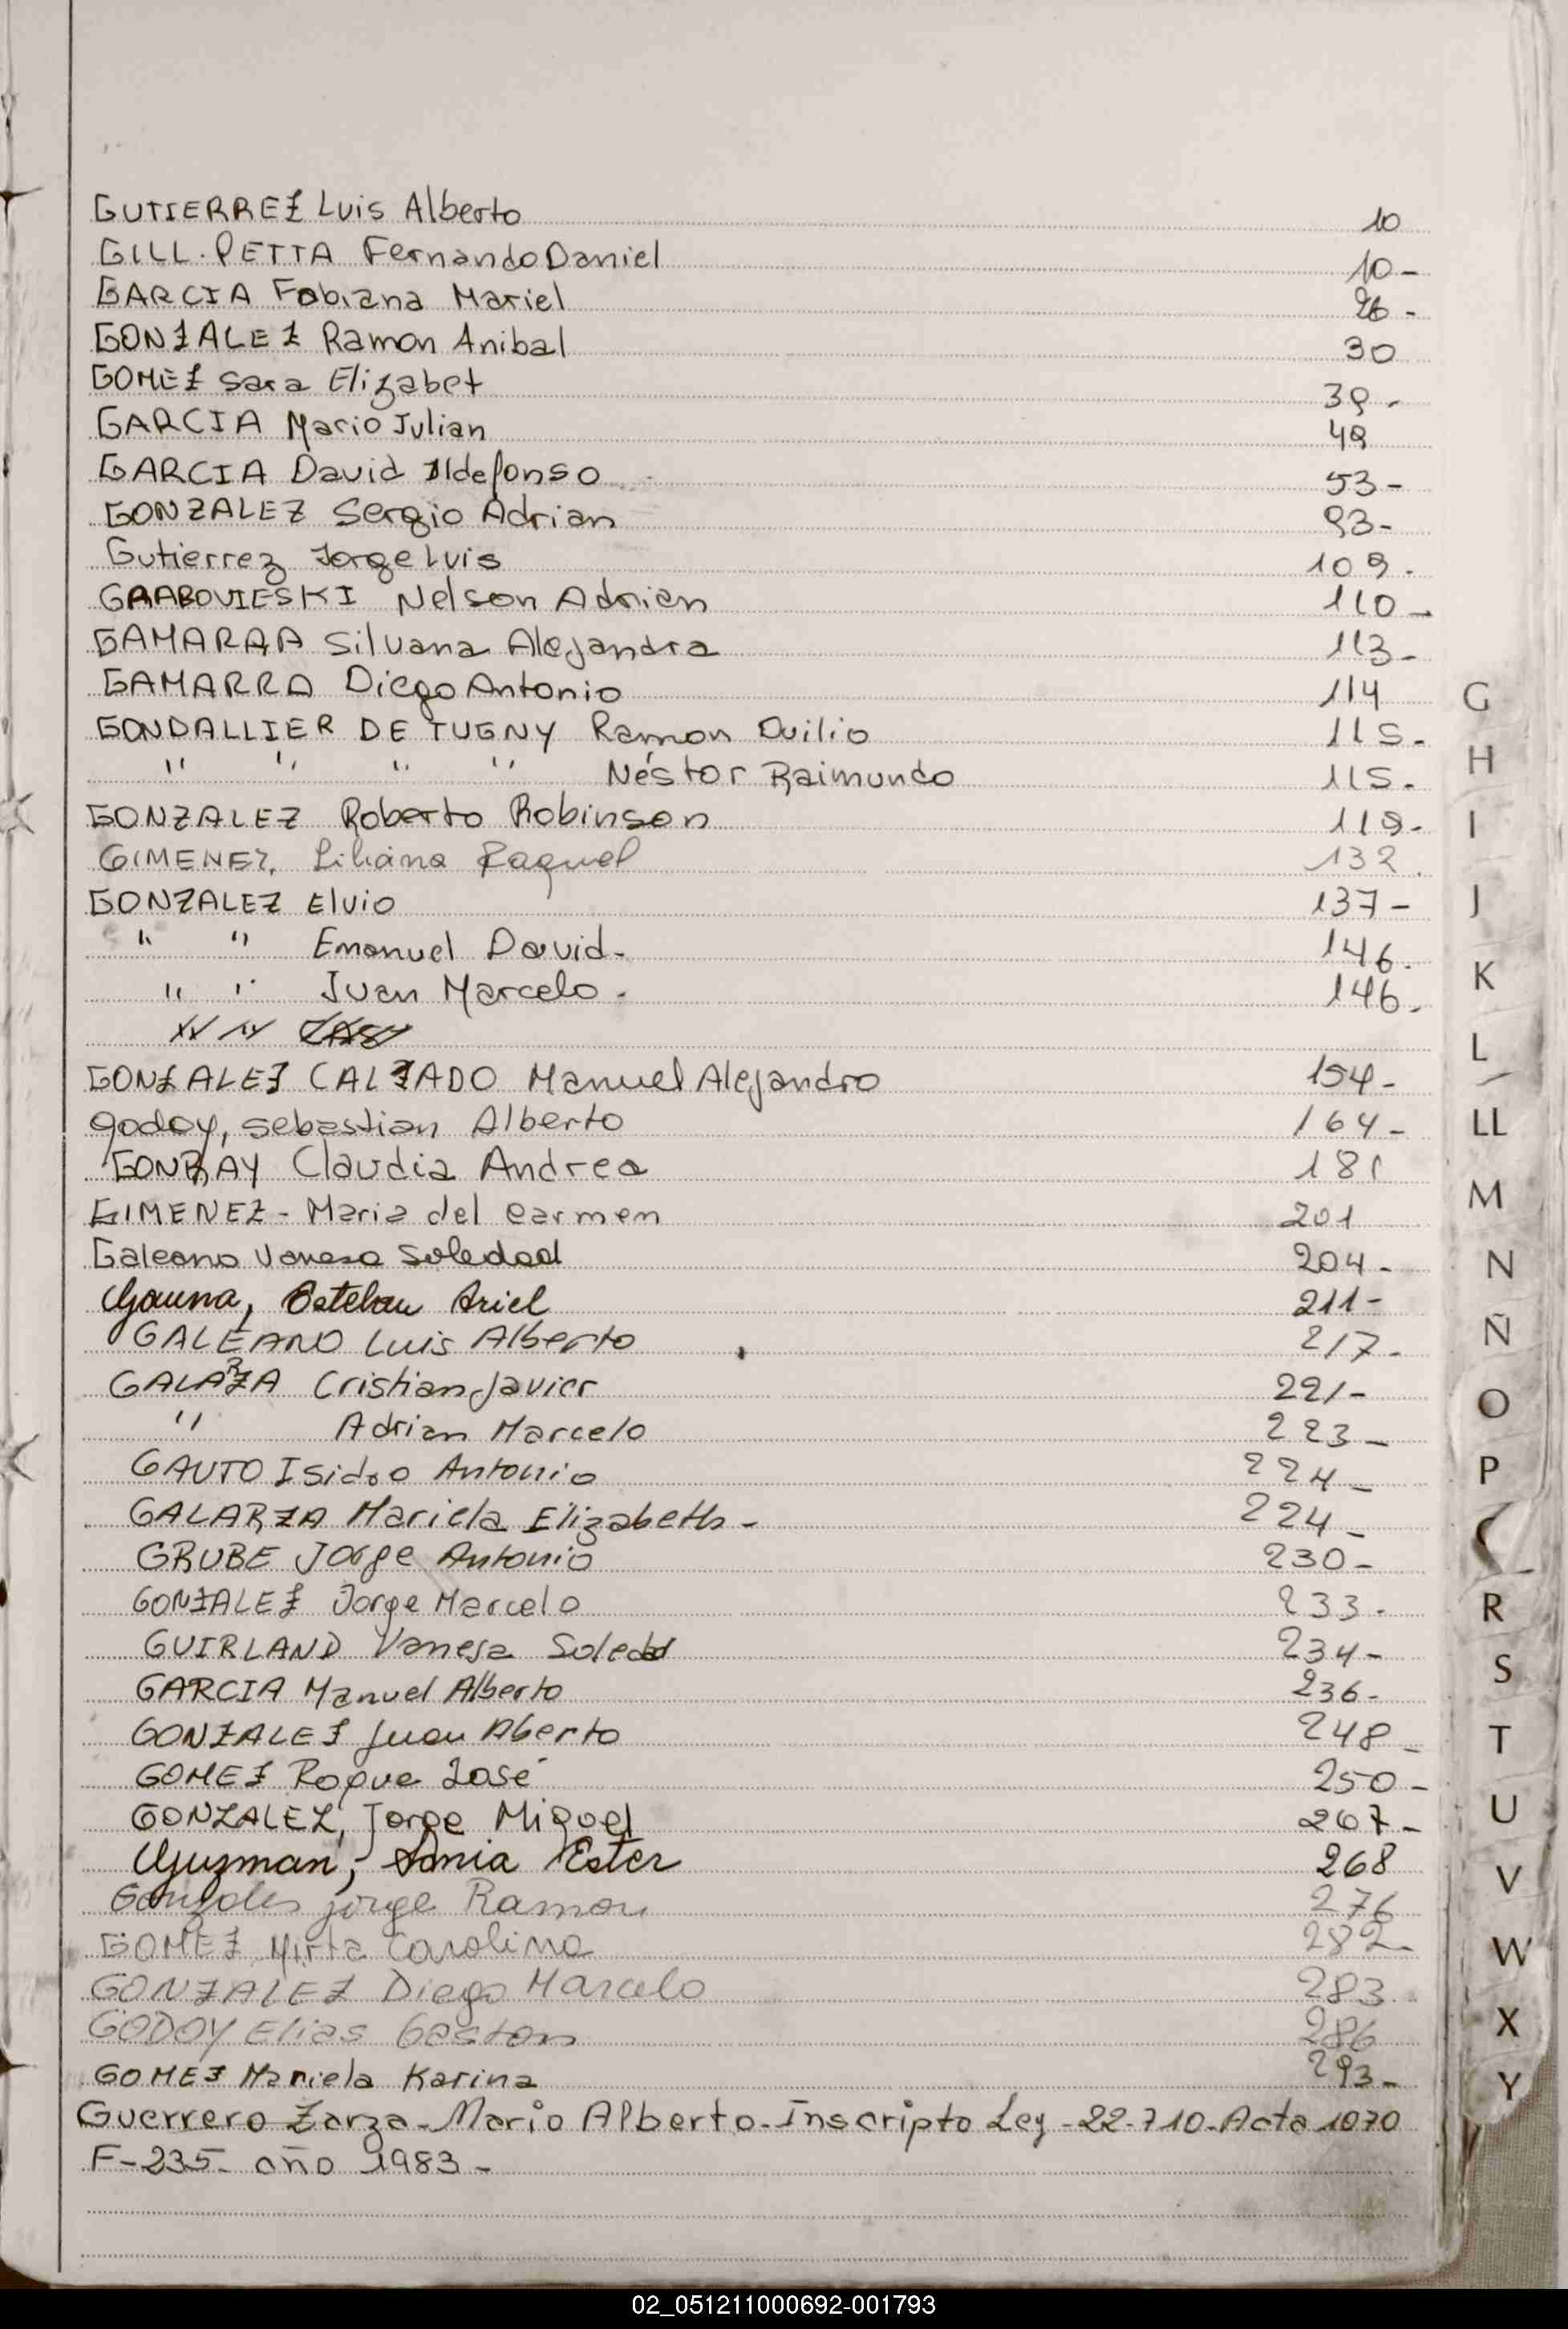 GUTIERREZ Luis Alberto 10
GILL. PETTA Fernando Daniel 10-
GARCIA Fabiana Mariel 26-
GONZALEZ Ramon Anibal 30
GOMEZ Sara Elizabet 39-
GARCIA Mario Julian 49
GARCIA David Ildefonso 53-
GONZALEZ Sergio Adrian 93-
Gutierrez Jorge Luis 109.
GRABOVIESKI Nelson Adrian 110-
GAMARRA Silvana Alejandra 113-
GAMARRA Diego Antonio 114
GONDALLIER DE TUGNY Ramon Duilio 115-
" " " " Néstor Raimundo 115.
GONZALEZ Roberto Robinson 119-
GIMENEZ, Liliana Raquel 132.
GONZALEZ Elvio 137-
" " Emanuel David- 146.
" " Juan Marcelo. 146.
GONZALEZ CALZADO Manuel Alejandro 154-
Godoy, Sebastian Alberto 164-
Claudia Andrea 181
GIMENEZ- Maria del Carmen 201
Galeano Vanesa Soledad 204-
Gauna, Esteban Ariel 211-
GALEANO Luis Alberto 217-
GALARZA Cristian Javier 221-
" Adrian Marcelo 223-
GAUTO Isidro Antonio 224-
GALARZA Mariela Elizabeth- 224-
GRUBE Jorge Antonio 230-
GONZALEZ Jorge Marcelo 233.
GUIRLAND Vanesa Soledad 234-
GARCIA Manuel Alberto 236-
GONZALEZ Juan Aberto 248-
GOMEZ Roque José 250-
GONZALEZ, Jorge Miguel 267-
Guzman, Sonia Ester 268
Gonzales Jorge Ramon 276
GOMEZ Mirta Carolina 282-
GONZALEZ Diego Marcelo 283.
GODOY Elias Gaston 286
GOMEZ Mariela Karina 293-
Guerrero Zarza- Mario Alberto- Inscripto Ley -22.710-Acta 1070
F-235- año 1983-
G
H
I
J
K
L
LL
M
N
Ñ
O
P
R
S
T
U
V
W
X
Y
02_051211000692-001793